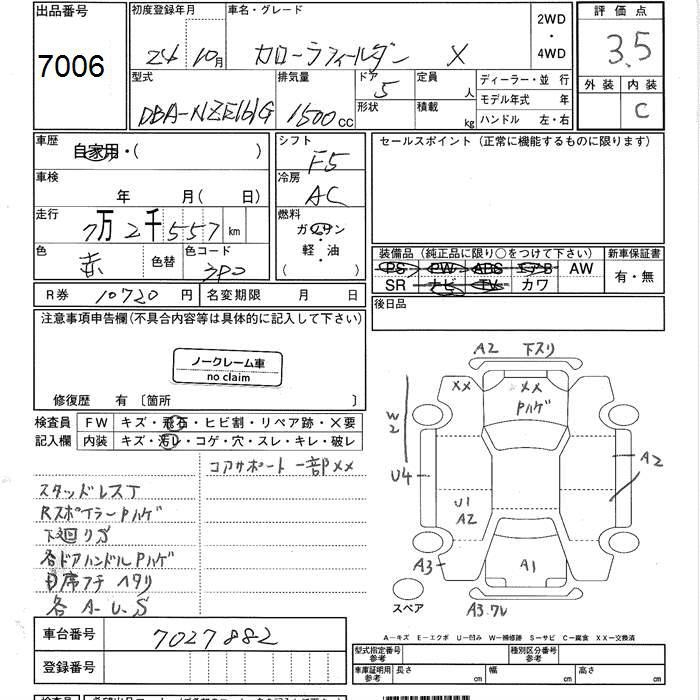 出品番号
7006
初度登録年月
24 10月
車名・グレード
カローラフィールダー X
2WD
・
4WD
評価点
3.5
外装 内装
C
型式
DBA-NZE161G
排気量
1500cc
ドア 5
形状
定員 人
積載 kg
ディーラー・並行
モデル年式 年
ハンドル 左・右
車歴
自家用・( )
車検
年 月( 日)
走行
7万2千557km
色
赤
色替
色コード
3P0
シフト
F5
冷房
AC
燃料
ガソリン
・
軽油
( )
セールスポイント(正常に機能するものに限ります)
装備品(純正品に限り○をつけて下さい)
PS PW ABS エアB AW
SR ナビ TV カワ
新車保証書
有・無
後日品
R券 10720円
名変期限 月 日
注意事項申告欄(不具合内容等は具体的に記入して下さい)
ノークレーム車
no claim
修復歴 有〔箇所 〕
検査員
記入欄
FW キズ・飛石・ヒビ割・リペア跡・X要
内装 キズ・汚レ・コゲ・穴・スレ・キレ・破レ
コアサポート一部XX
スタッドレスT
RスポイラーPハゲ
下廻りS
各ドアハンドルPハゲ
各A-U.S
A2 下スリ
XX
XX
Pハゲ
W2
U4
U1
A2
A2
A3
A1
スペア
A3.ワレ
A―キズ E―エクボ U―凹み W―補修跡 S―サビ C―腐食 XX―交換済
車台番号
7027882
登録番号
型式指定番号
参考
種別区分番号
参考
車庫証明用
参考
長さ cm
幅 cm
高さ cm